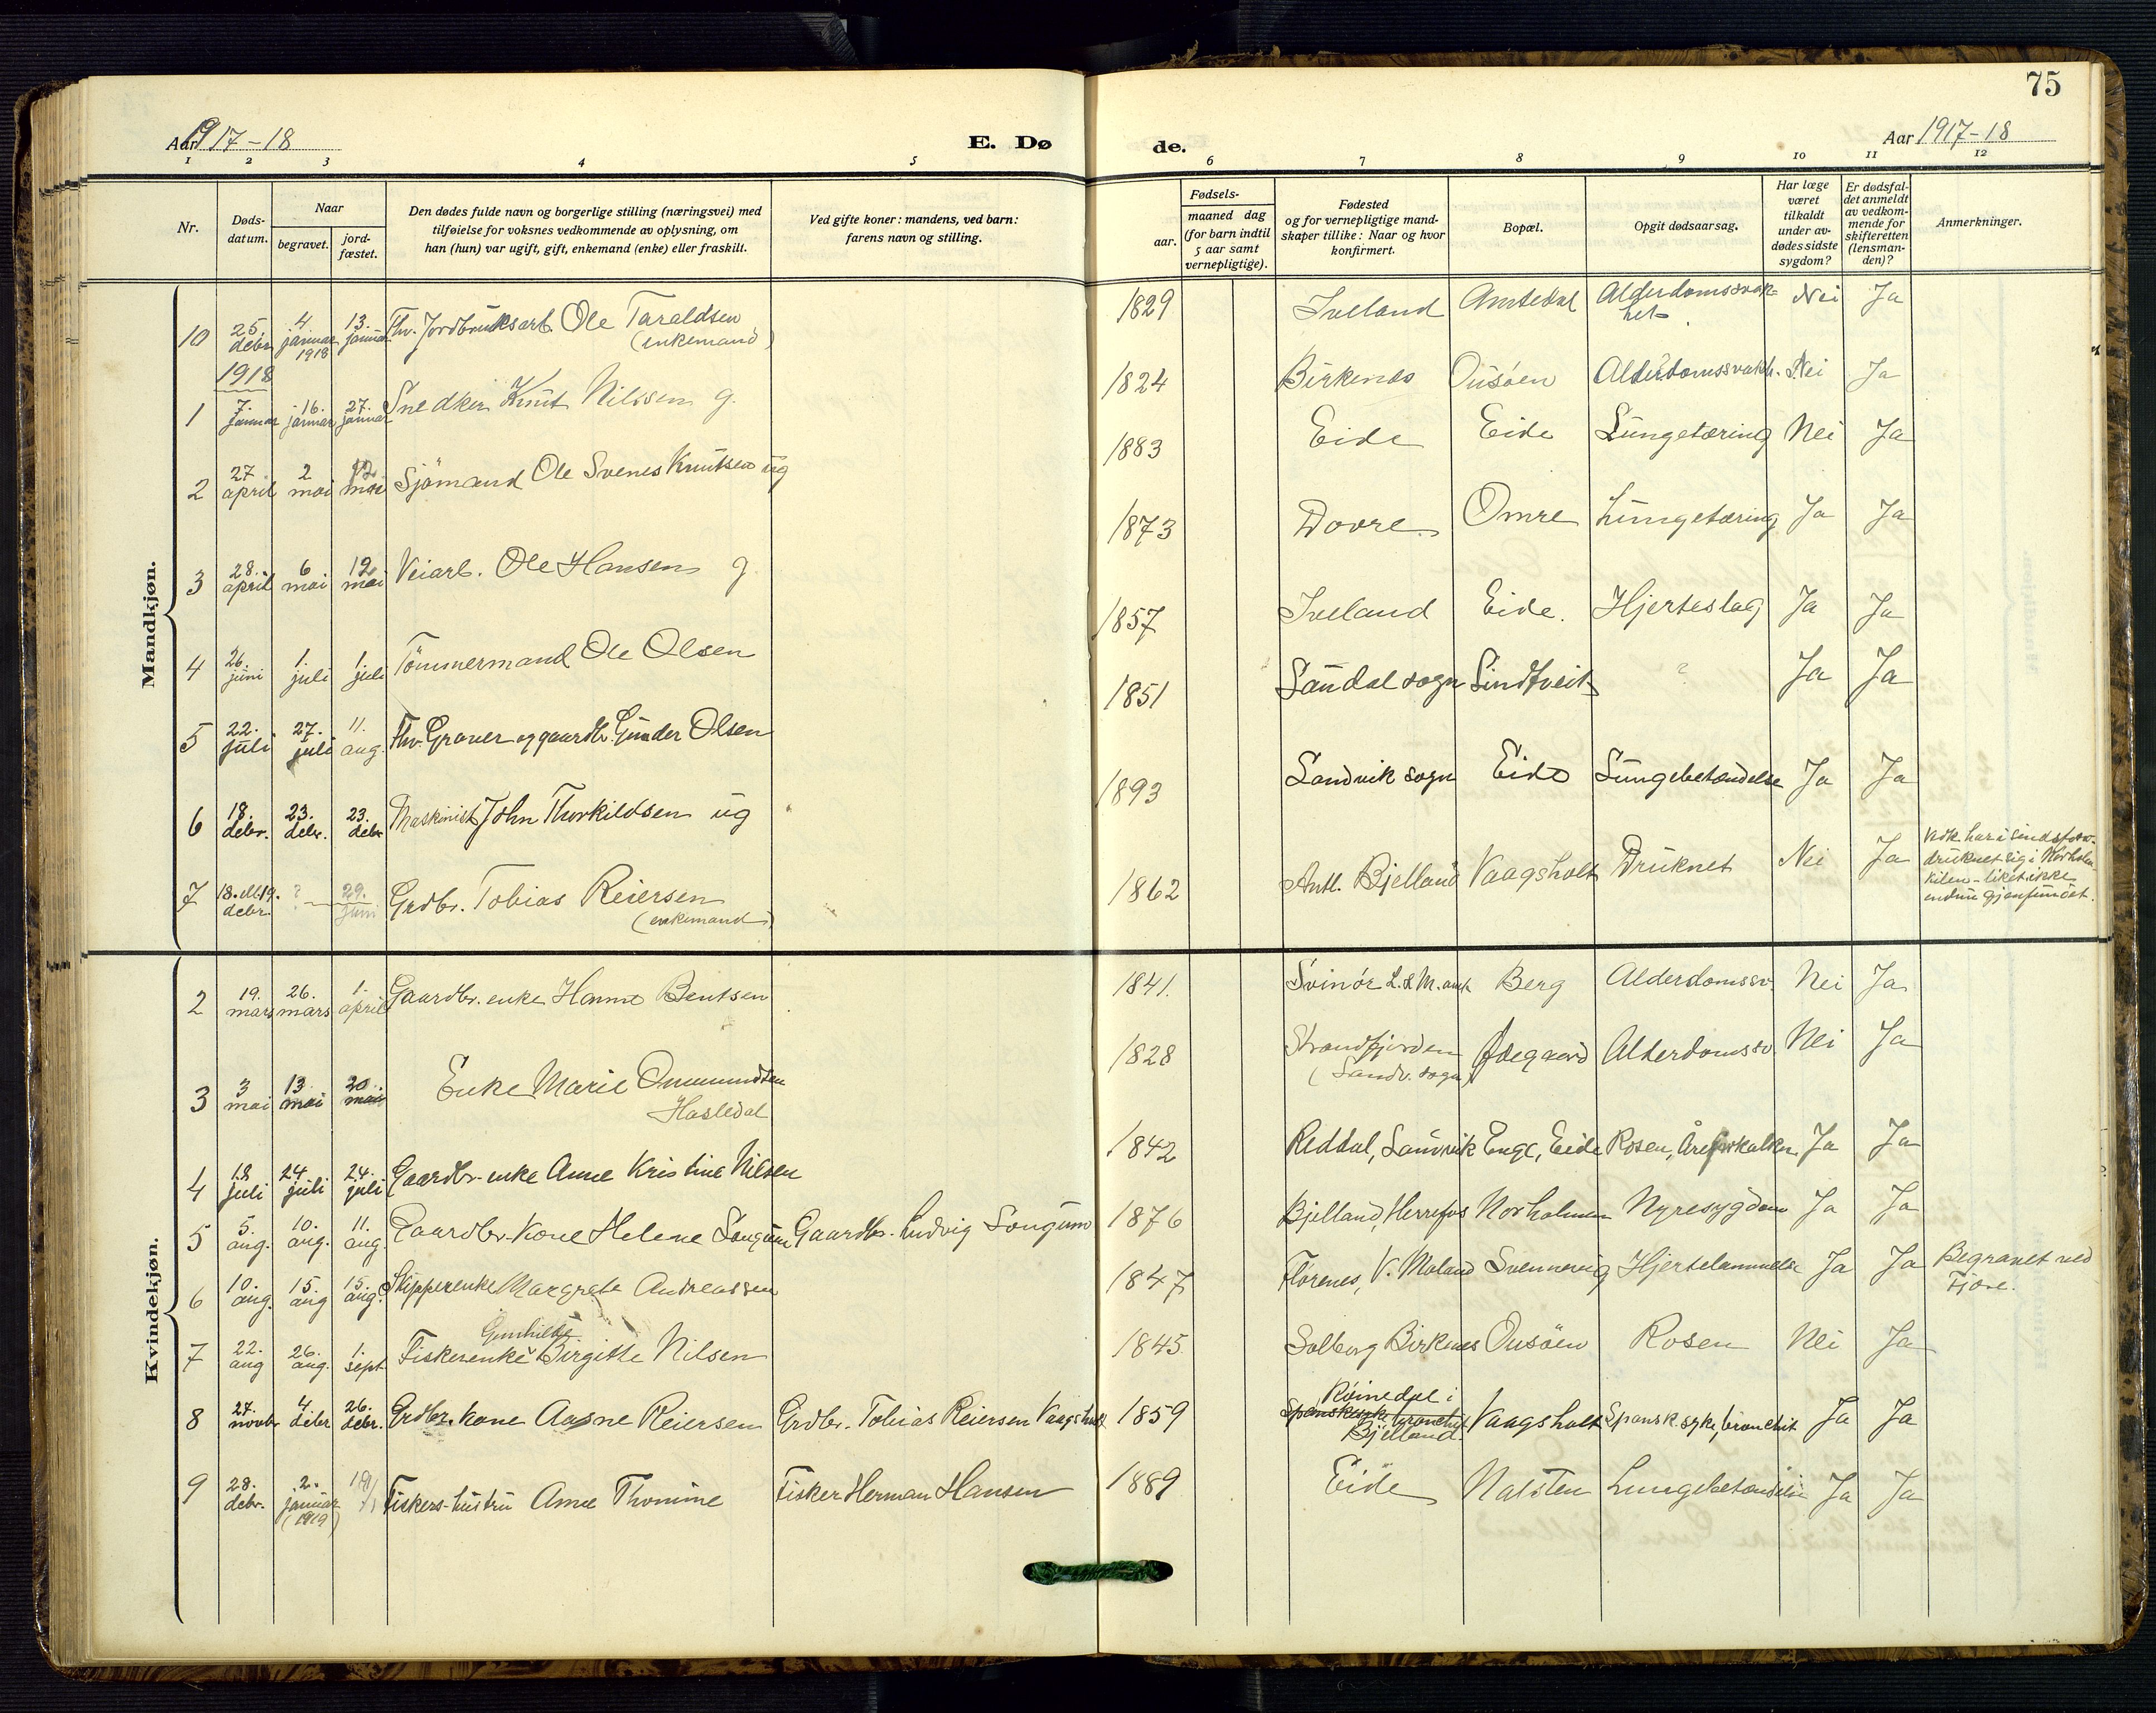 75
Aar 1917-18
E. Dø
de.
Aar 1917-18
1 2 3 4 5 6 7 8 9 10 11 12
Nr.
Døds-
datum.
Naar
begravet.
jord-
fæstet.
Den dødes fulde navn og borgerlige stilling (næringsvei) med
tilføielse for voksnes vedkommende av oplysning, om
han (hun) var ugift, gift, enkemand (enke) eller fraskilt.
Ved gifte koner: mandens, ved barn:
farens navn og stilling.
Fødsels-
aar.
maaned dag
(for barn indtil
5 aar samt
vernepligtige).
Fødested
og for vernepligtige mand-
skaper tillike: Naar og hvor
konfirmert.
Bopæl.
Opgit dødsaarsag.
Har læge
været
tilkaldt
under av-
dødes sidste
sygdom?
Er dødsfal-
det anmeldt
av vedkom-
mende for
skifteretten
(lensman-
den)?
Anmerkninger.
Mandkjøn.
10 25. debr 4 januar 1918 13. januar Fhv. Jordbruksarb. Ole Taraldsen (enkemand) 1829 Iveland Amtedal Alderdomssvak-het Nei Ja
1918
1 7. januar 16. januar 27. januar Snedker Knut Nilssen g. 1824 Birkenes Ousöen Alderdomssvakh. Nei Ja
2 27 april 2 mai 12 mai Sjömand Ole Svenes Knutsen ug 1883 Eide Eide Lungetæring Nei Ja
3 28. april 6 mai 12 mai Veiarb. Ole Hansen g 1873 Dovre Omre Lungetæring Ja Ja
4 26. juni 1. juli 1. juli Tömmermand Ole Olsen 1857 Iveland Eide. Hjerteslag Ja Ja
5 22. juli 27. juli 11. aug. Fhv. Graver og gaardbr. Gunder Olsen 1851 Landal sogn Lindtveit ? Ja Ja
6 18. debr. 23. debr. 23. debr Maskinist John Thorkildsen ug 1893 Landvik sogn Eide Lungebetændelse Ja Ja
7 18. ell. 19. debr. ? - 29. juni Grdbr. Tobias Reiersen (enkemand) 1862 Bjelland Vaagsholt Druknet Nei Ja
druknet sig i
kilen - liket ikke
endnu gjenfundet.
Kvindekjøn.
2 19. mars 26. mars 1. april Gaardbr. enke Hanne Bentsen 1841. Svinör L. & M. amt Berg Alderdomssv. Nei Ja
3 3 mai 13 mai 20. mai Enke Marie Omundsen Hasledal 1828 Strandfjorden (Landv. sogn) Ødegaard Alderdomssv. Nei Ja
4 18 juli 24. juli 24. juli Gaardbr-enke Anne Kristine Nilsen 1842 Reddal, Landvik Enge, Eide Rosen, Åreforkalkn. Ja Ja
5 5. aug. 10. aug. 11. aug. Gaardbr.-kone Helene Longum Gaardbr. Ludvig Longum 1876 Bjelland, Herrefos Norholmen Nyresygdom Ja Ja
6 10. aug. 15 aug 15. aug. Skipperenke Margrete Andreassen 1847 Flörenes, V. Moland Svennevig Hjertelammelse Ja Ja Begravet ved Fjære.
7 22. aug 26. aug. 1. sept Fiskerenke Gunhilde Birgitte Nilsen 1845. Solberg Birkenes Ousöen Rosen Nei Ja
8 27. novbr 4. debr 26. debr. Grdbr. kone Aasne Reiersen Grdbr. Tobias Reiersen Vaagsholt 1859 Röinedal i Bjelland. Vaagsholt Spansk. syke, bronchit Ja Ja
9 28. debr. 2. januar (1919) Fiskers-hustru Anne Thomine Fisker Herman Hansen 1889 Eide Natsten Lungebetændelse Ja Ja